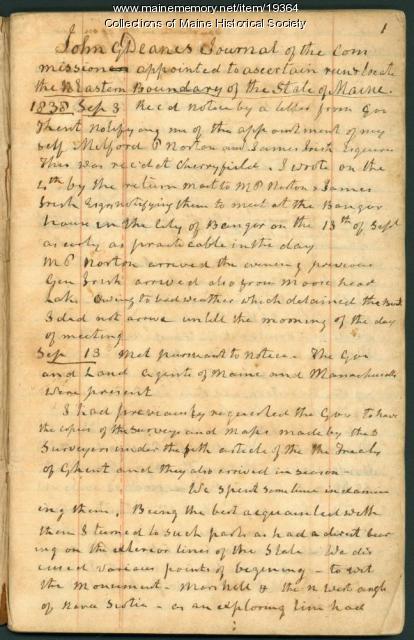 www.mainememory.net/item/19364
Collections of Maine Historical Society
1
John G Deanes Journal of the Com
mission appointed to ascertain run & locate
the N Eastern Boundary of the State of Maine.
1838 Sep 3 Rec'd notice by a letter from Gov
Kent notifying me of the appointment of my
self Milford P Norton and James Irish Esquires
This was rec'd at Cherryfield. I wrote on the
4th by the return mail to M P Norton & James
Irish Esqrs notifying them to meet at the Bangor
house in the City of Bangor on the 13th of Sept
as early as practicable in the day
M P Norton arrived the evening previous
Gen Irish arrived also from Moose head
Lake Owing to bad weather which detained the
I did not arrive untill the morning of the day
of meeting
Sep 13 Met pursuant to notice - The Gov
and Land Agents of Maine and Massachusetts
were present
I had previously requested the Gov to have
the copies of the surveys and maps made by the
Surveyors under the fifth article of the Treaty
of Ghent and they also arrived in season -
We spent some time in examin
ing them. Being the best acquainted with
them I turned to such parts as had a direct bear
ing on the exterior lines of the State We dis
cussed various points of begining - to wit
the Monument - Marshill & the N West angle
of Nova Scotia - as an exploring line had